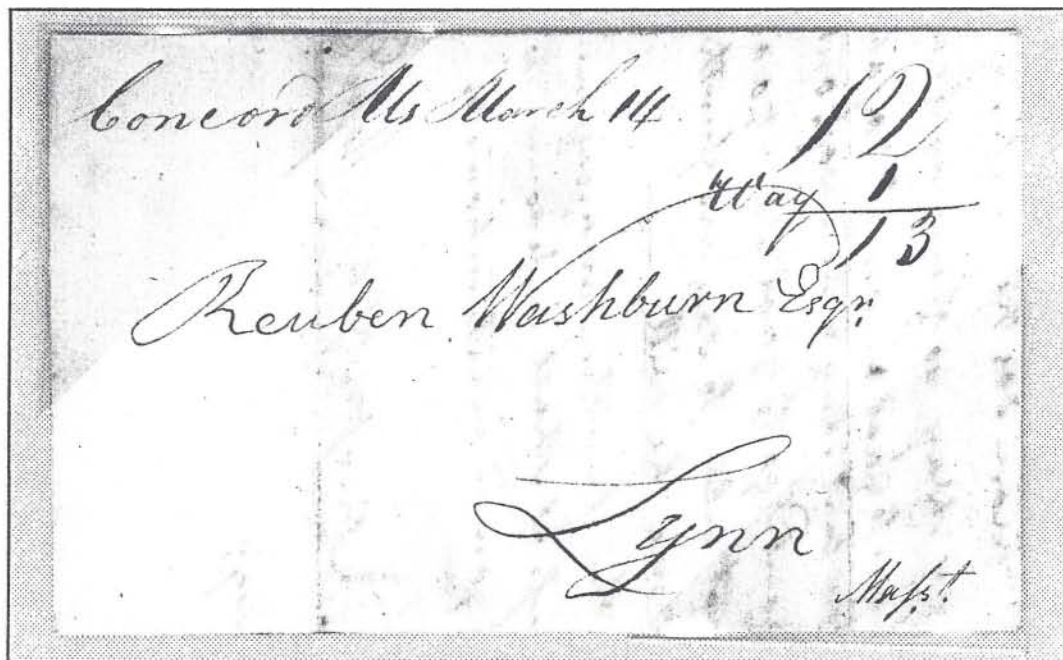 Concord Ms March 14 12
Way 1
13
Reuben Washburn Esqr.
Lynn
Mass.t